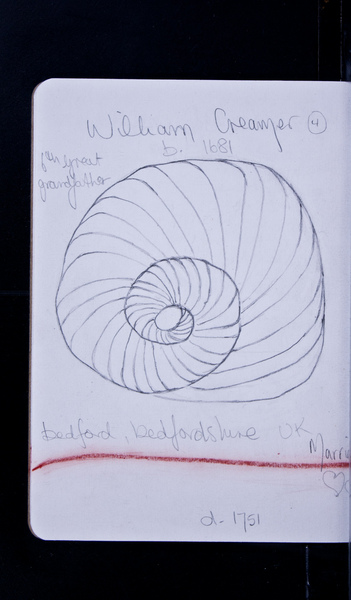 William Creamer ④
b. 1681
6th great
grandfather
bedford, bedfordshire UK
Marri
d- 1751